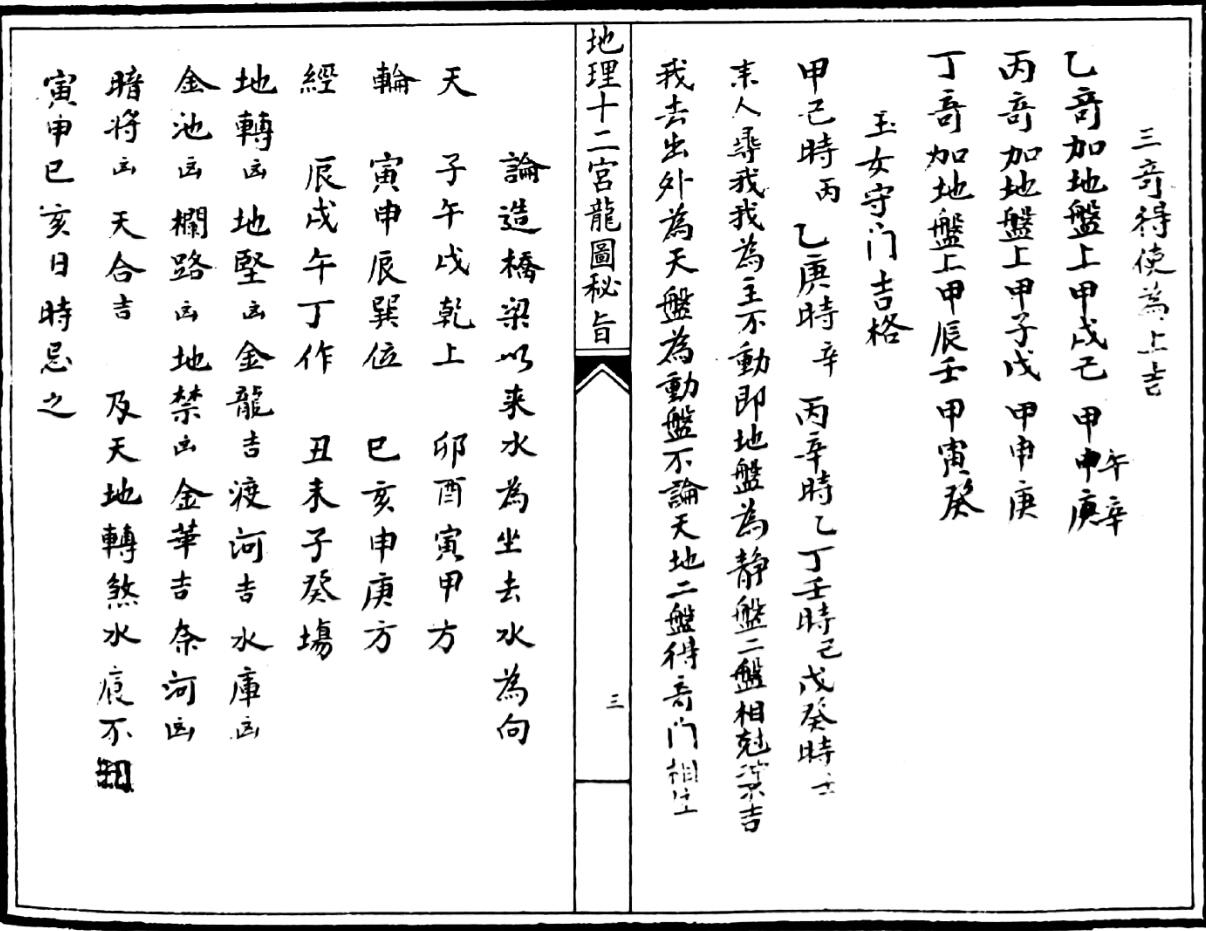 三奇得使為上吉
乙奇加地盤上甲戌己 甲申庚 午辛
丙奇加地盤上甲子戊 甲申庚
丁奇加地盤上甲辰壬 甲寅癸
玉女守门吉格
甲己時丙 乙庚時辛 丙辛時乙丁壬時己戊癸時
来人尋我我為主不動即地盤為静盤二盤相尅 吉
我去出外為天盤為動盤不論天地二盤得奇门相生
地理十二宮龍圖秘旨
三
論造橋梁以来水為坐去水為向
天 子午戌乾上 卯酉寅甲方
輪 寅申辰巽位 巳亥申庚方
經 辰戌午丁作 丑未子癸塲
地轉凶 地堅凶 金龍吉 渡河吉 水庫凶
金池凶 欄路凶 地禁凶 金華吉 奈河凶
暗将凶 天合吉 及天地轉煞水痕不
寅申巳亥日時忌之